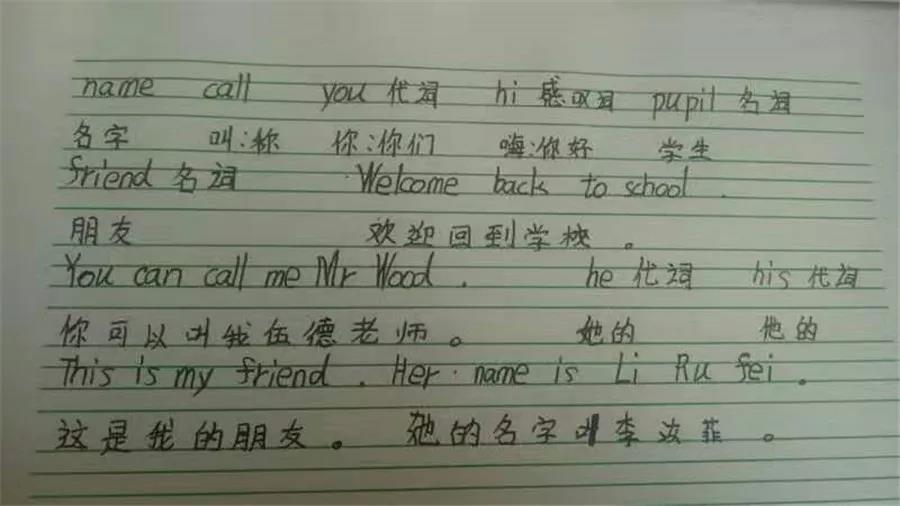 name call you 代词 hi 感叹词 pupil 名词
名字 叫:称 你:你们 嗨:你好 学生
friend 名词 Welcome back to school .
朋友 欢迎回到学校 。
You can call me Mr Wood . he 代词 his 代词
你可以叫我伍德老师 。 她的 他的
This is my friend . Her name is Li Ru fei .
这是我的朋友 。 她的名字叫李汝菲 。